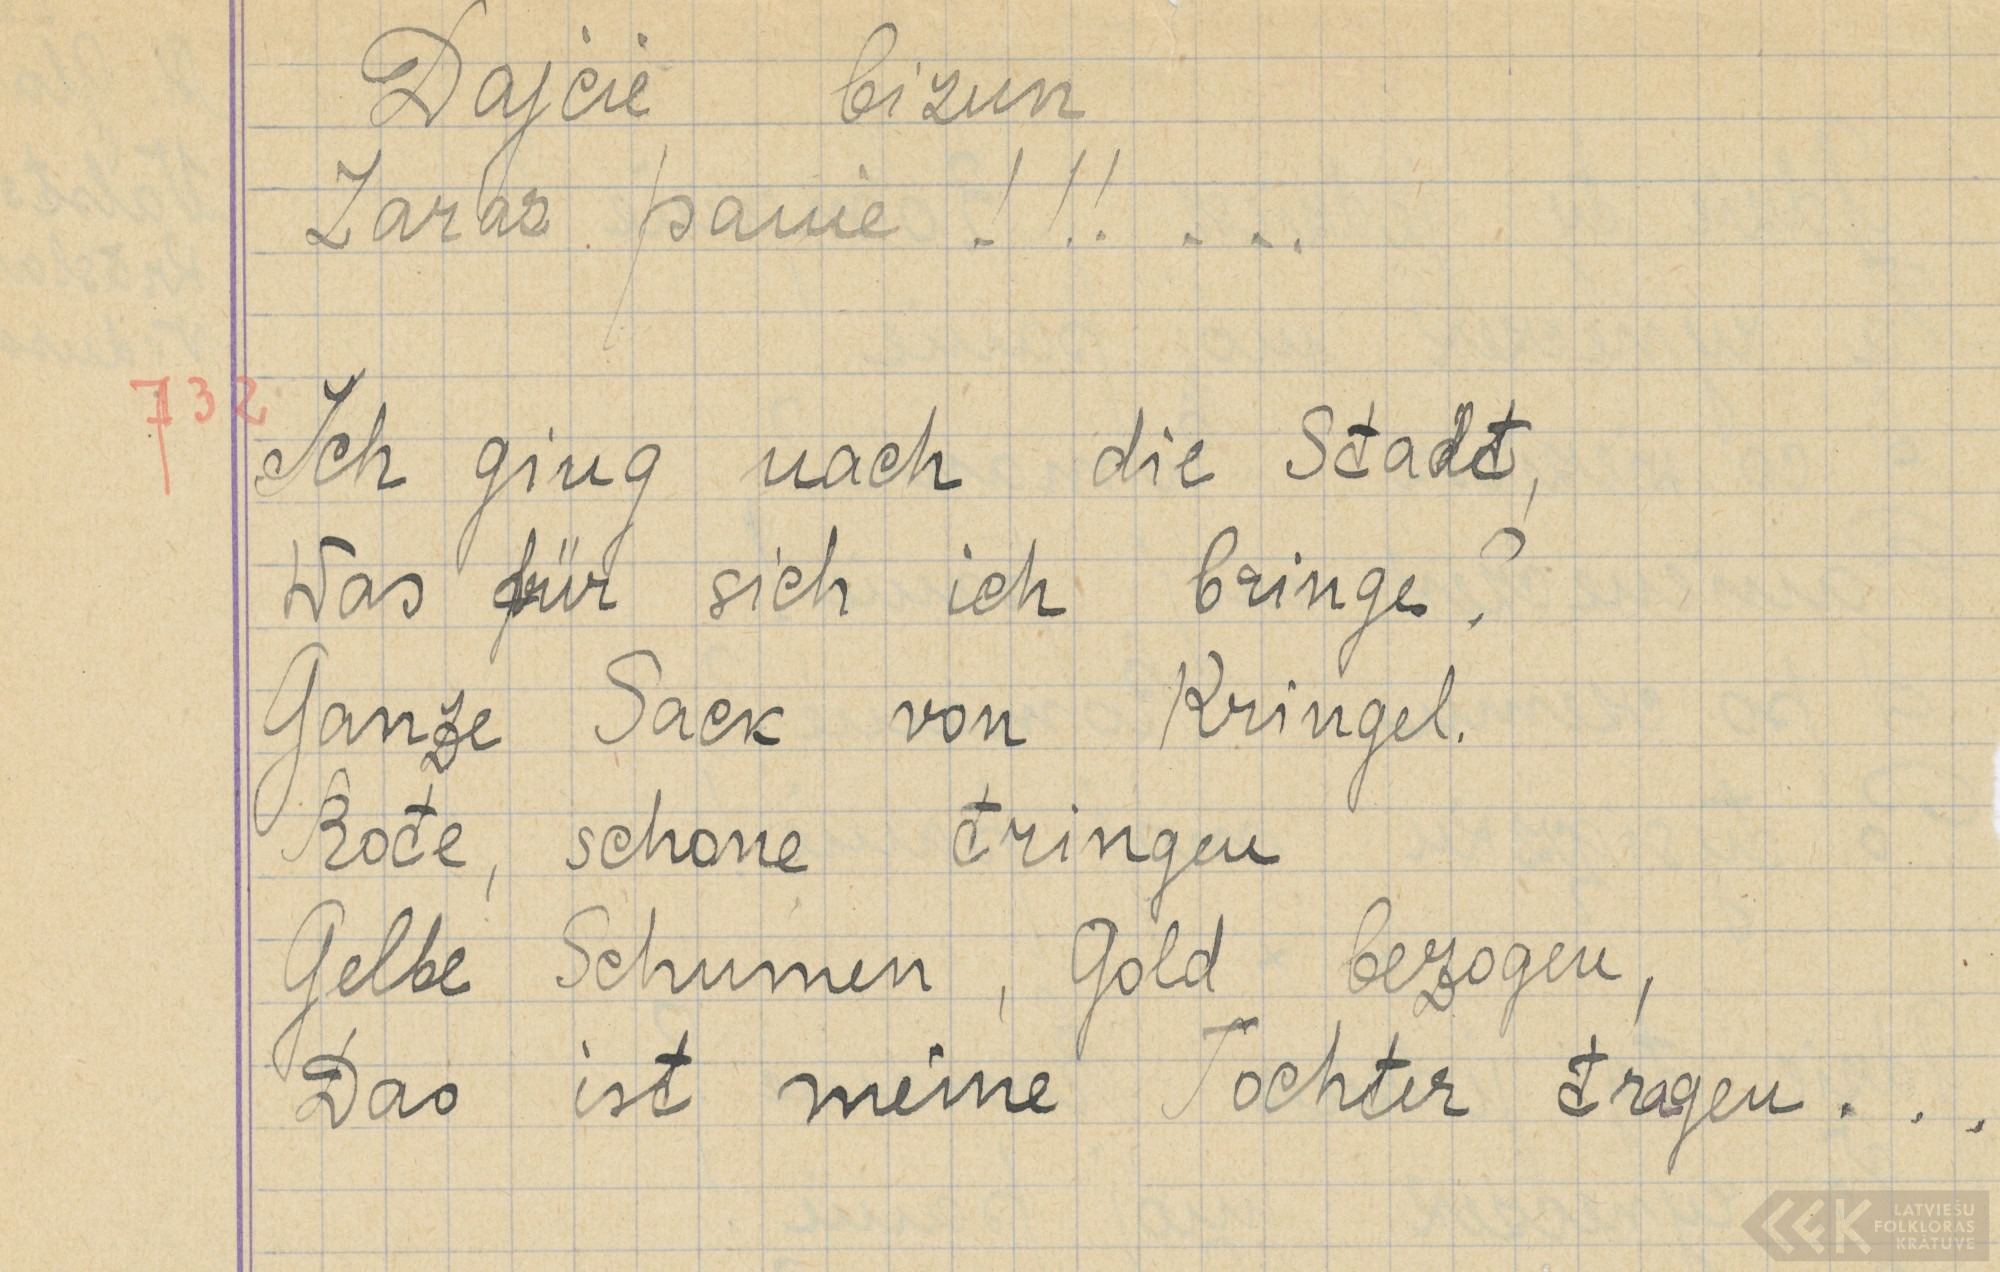 Dajcie bizun
Zaraz panie!!! ...
732
Ich ging nach die Stadt,
Was für sich ich bringe?
Ganze Sack von Kringel.
Rote, schone tringen
Gelbe Schumen, Gold bezogen,
Das ist meine Tochter tragen...
LATVIEŠU
FOLKLORAS
KRĀTUVE